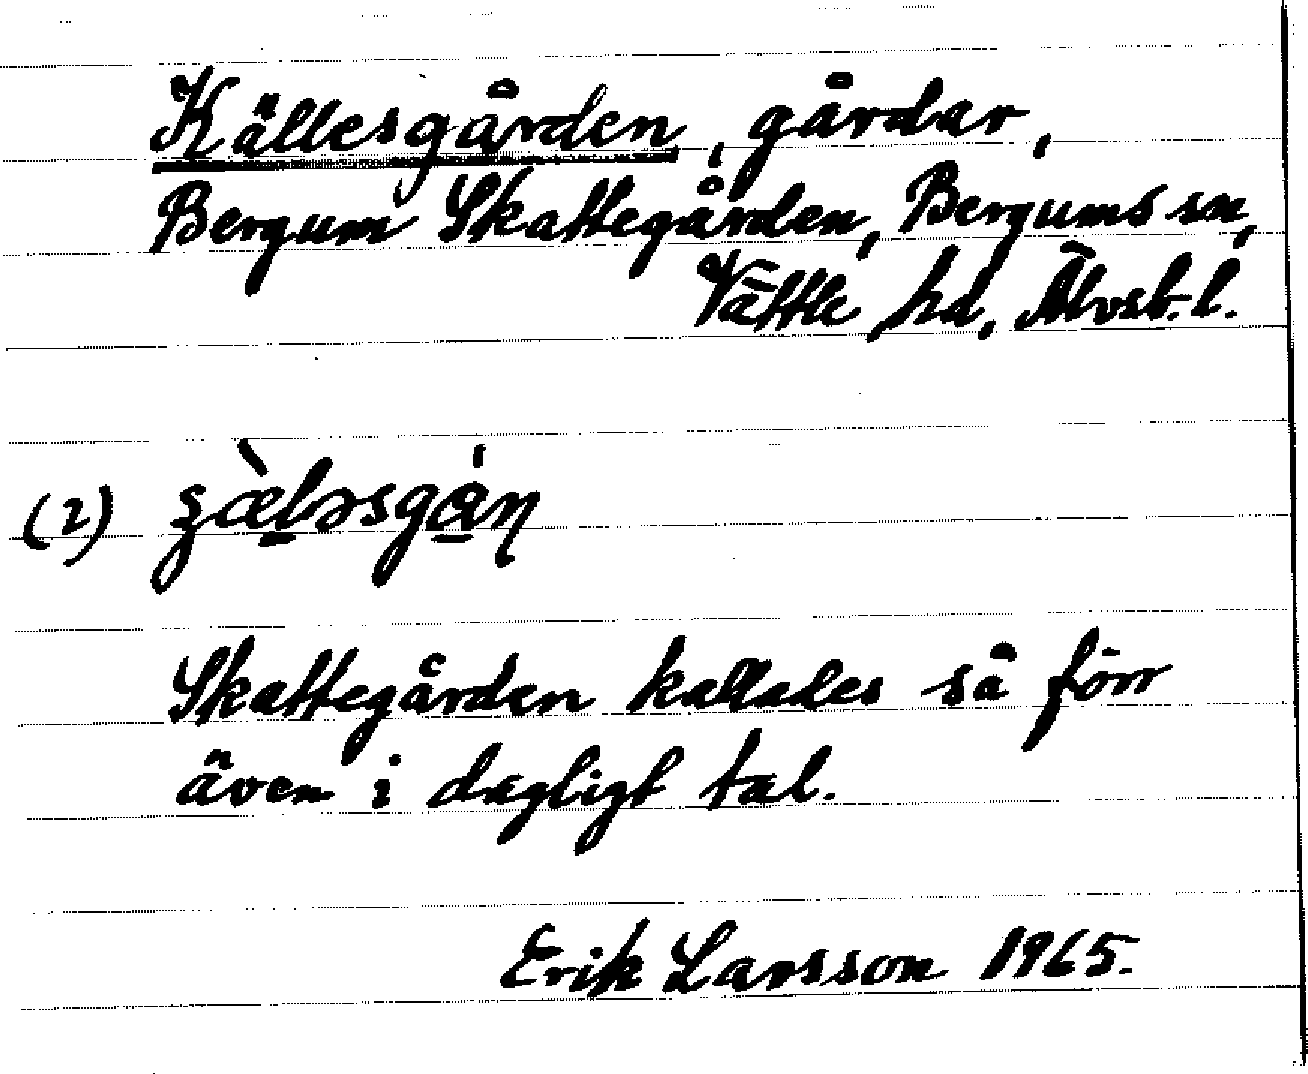 Källesgården, gårdar,
Bergum Skattegården, Bergums sn,
Vättle hd, Älvsb. l.
(2)
Skattegården kallades så förr
även i dagligt tal.
Erik Larsson 1965.